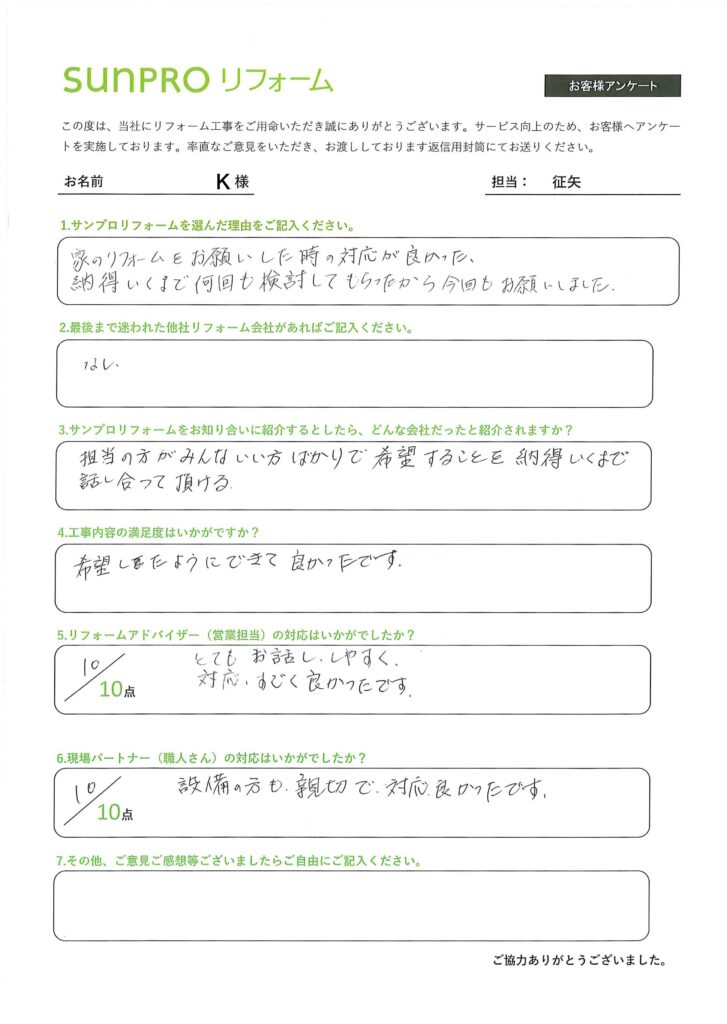 sunPRO リフォーム
お客様アンケート
この度は、当社にリフォーム工事をご用命いただき誠にありがとうございます。サービス向上のため、お客様へアンケー
トを実施しております。率直なご意見をいただき、お渡ししております返信用封筒にてお送りください。
お名前 K 様 担当： 征矢
1.サンプロリフォームを選んだ理由をご記入ください。
家のリフォームをお願いした時の対応が良かった、
納得いくまで何回も検討してもらったから今回もお願いしました.
2.最後まで迷われた他社リフォーム会社があればご記入ください。
なし.
3.サンプロリフォームをお知り合いに紹介するとしたら、どんな会社だったと紹介されますか？
担当の方がみんないい方ばかりで希望することを納得いくまで
話し合って頂ける.
4.工事内容の満足度はいかがですか？
希望したようにできて良かったです.
5.リフォームアドバイザー（営業担当）の対応はいかがでしたか？
10/10点
とてもお話し、しやすく、
対応、すごく良かったです.
6.現場パートナー（職人さん）の対応はいかがでしたか？
10/10点
設備の方も、親切で、対応、良かったです.
7.その他、ご意見ご感想等ございましたらご自由にご記入ください。
ご協力ありがとうございました。